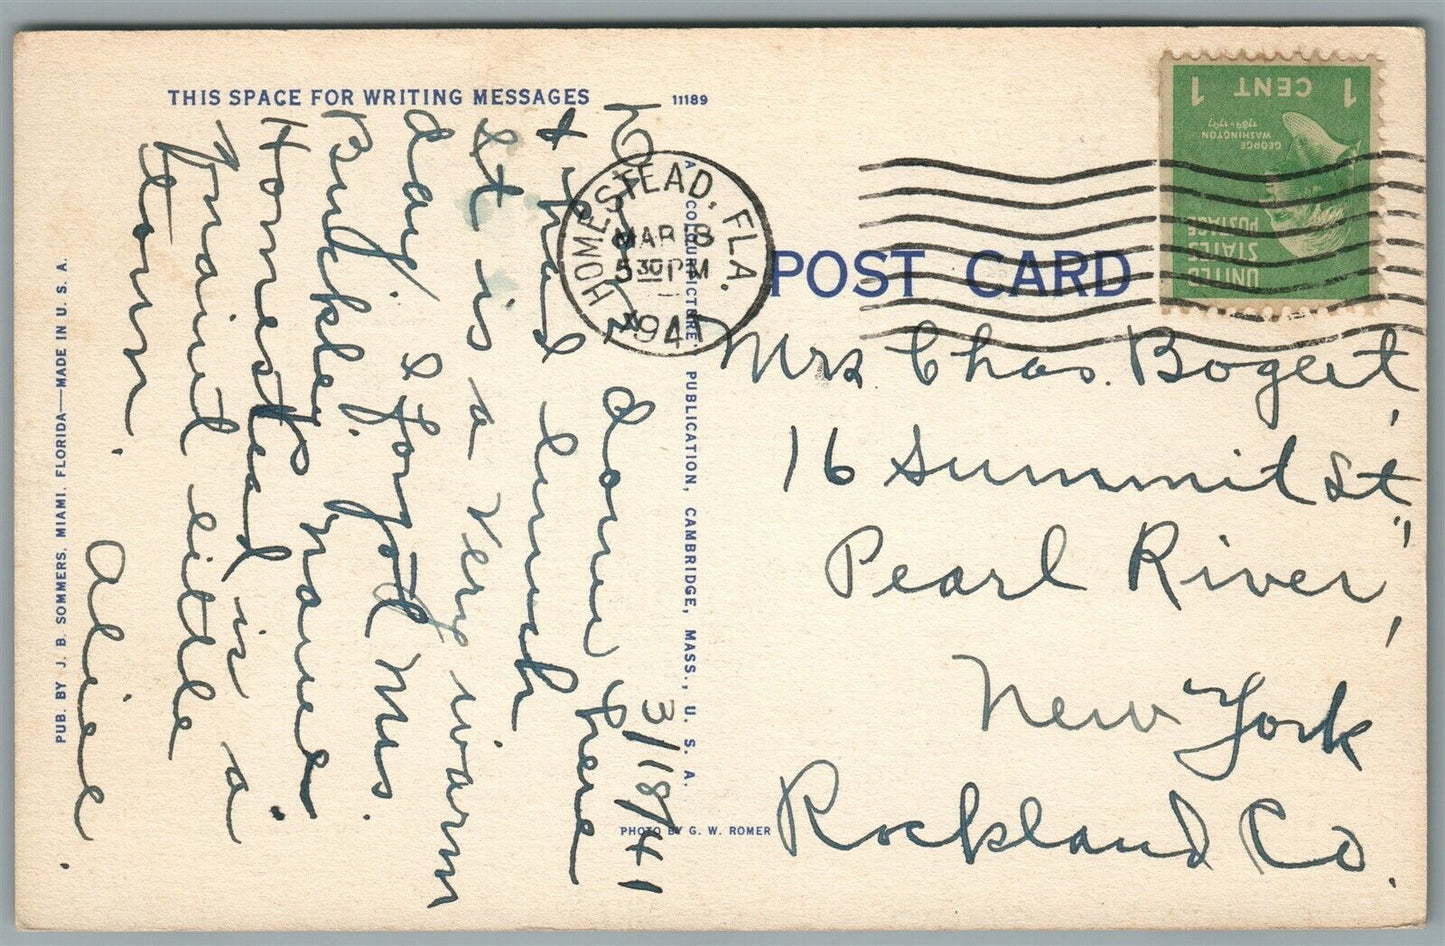 THIS SPACE FOR WRITING MESSAGES
11189
3/18/41
down here
+ had lunch
It is a very warm
day. I forgot Mrs.
Bulkley name
Homestead is a
quaint little
town.
Alice.
PUB. BY J. B. SOMMERS, MIAMI, FLORIDA—MADE IN U. S. A.
A COLOURPICTURE PUBLICATION, CAMBRIDGE, MASS., U. S. A.
PHOTO BY G. W. ROMER
HOMESTEAD, FLA.
MAR 18
5 30 PM
1941
POST CARD
UNITED
STATES
POSTAGE
GEORGE
WASHINGTON
1789-1797
1 CENT 1
Mrs Chas. Bogert,
16 Summit St,
Pearl River,
New York
Rockland Co.